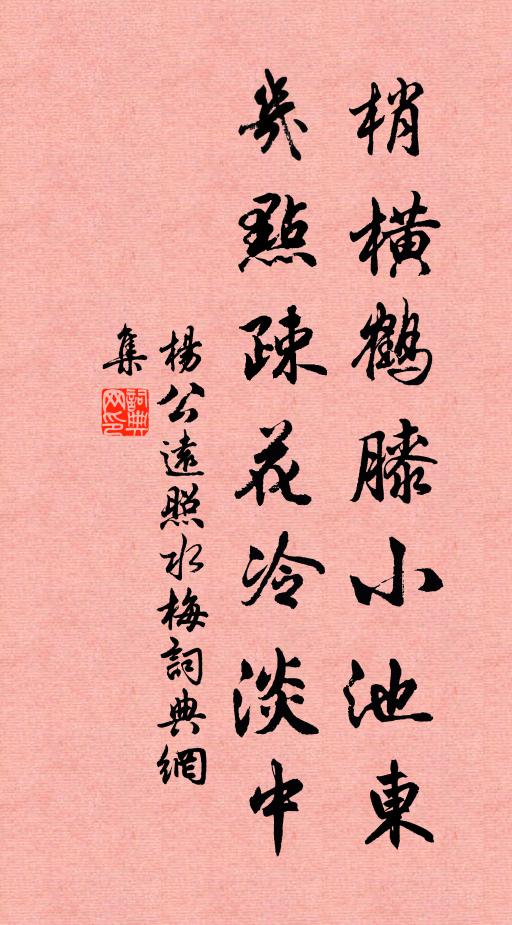 梢橫鶴膝小池東
幾點疎花冷淡中
楊公遠照水梅詞典網
集
詞典
网印